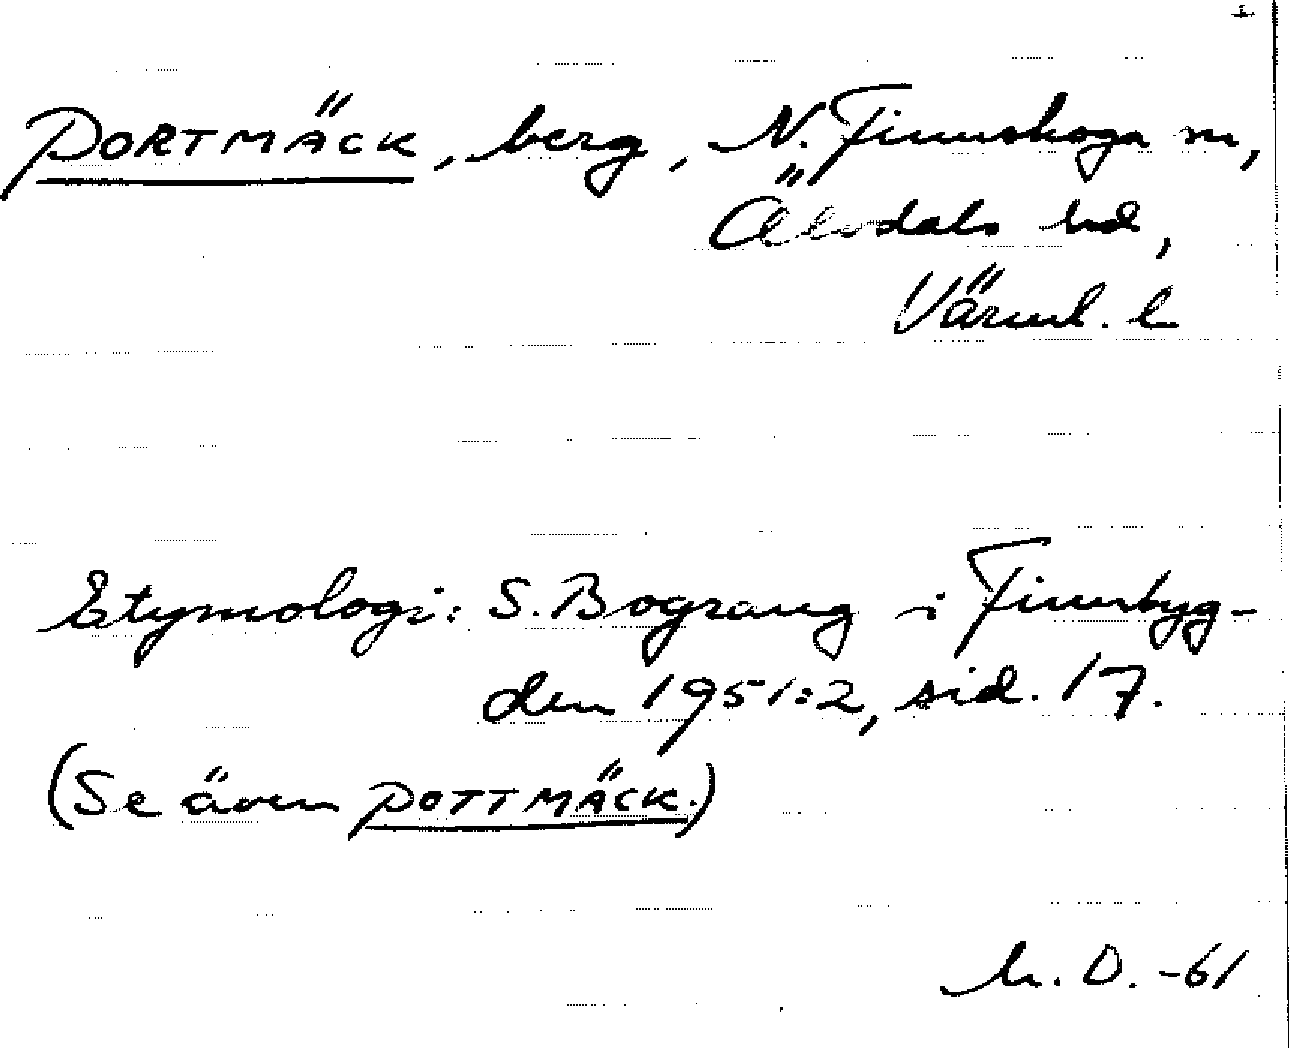 PORTMÄCK, berg, N. Finnskoga sn,
Älvdals hd,
Värml. l.
Etymologi: S. Bograng i Finnbyg-
den 1951:2, sid. 17.
(Se även POTTMÄCK.)
D. -61